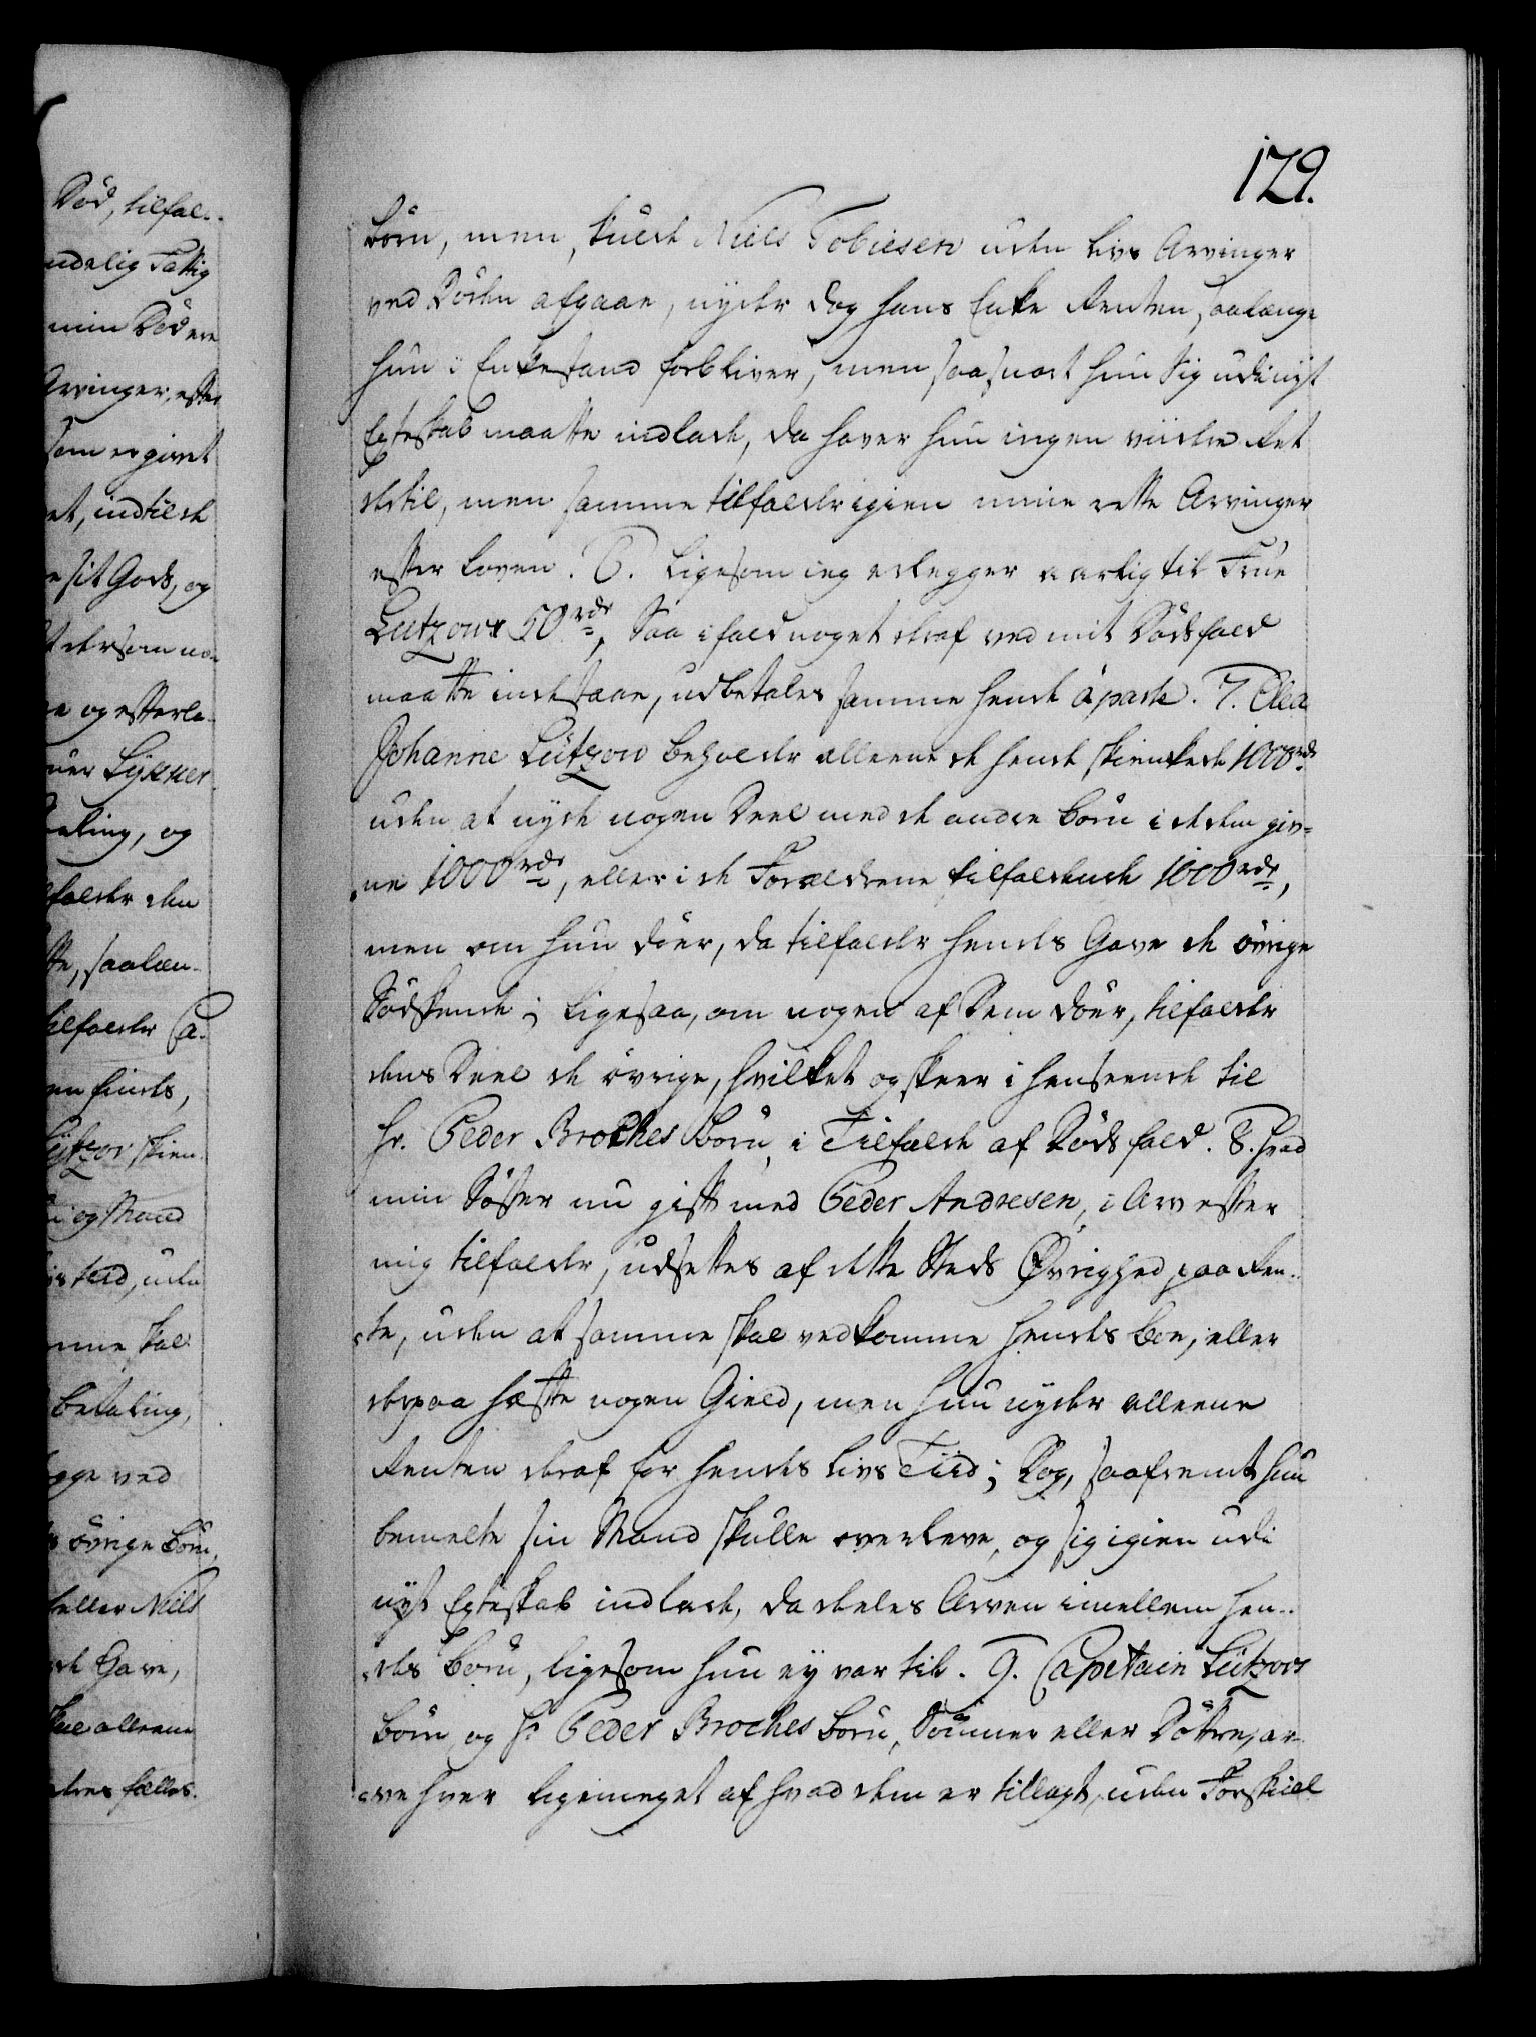 129.
Død, tilfal-
Børn, men, skulde Niels Tobiesen uden Livs Arvinger
ved Døden afgaae, nyder dog hans Enke Renten, saalænge
hun i Enkestand forbliver, men saasnart hun sig udi nyt
Egteskab maatte indlade, da haver hun ingen viidre Ret
dertil, men samme tilfalder igien mine rette Arvinger
efter Loven. 6. Ligesom ieg erlegger aarlig til Frue
Lützow 50 rdr, Saa ifald noget deraf ved mit Dødsfald
maatte indestaae, udbetales samme hende áparte. 7. Elea
Johanne Lützow beholder alleene de hende skienkede 1000 rdr
uden at nyde nogen Deel med de andre Børn i de dem giv-
ne 1000 rdr, eller i de Forældrene tilfaldende 1000 rdr,
men om hun döer, da tilfalder hendes Gave de övrige
Södskende; Ligesaa, om nogen af Dem döer, tilfalder
dens Deel de övrige, hvilket og skeer i Henseende til
Hr. Peder Broches Börn, i Tilfælde af Dødsfald. 8. Hvad
min Söster nu gift med Peder Andresen, i Arv efter
mig tilfalder, udsettes af dette Steds Øvrighed paa Ren-
te, uden at samme skal vedkomme hendes Boe, eller
derpaa hæfte nogen Gield, men hun nyder alleene
Renten deraf for hendes Livs Tiid; Dog, saafremt hun
bemelte sin Mand skulle overleve, og sig igien udi
nyt Egteskab indlade, da deeles Arven imellem hen-
des Börn, ligesom hun ey var til. 9. Capitain Lützows
Börn og Hr. Peder Broches Börn, Sönner eller Döttre, ar-
ve hver ligemeget af hvad dem er tillagt, uden Forskiel